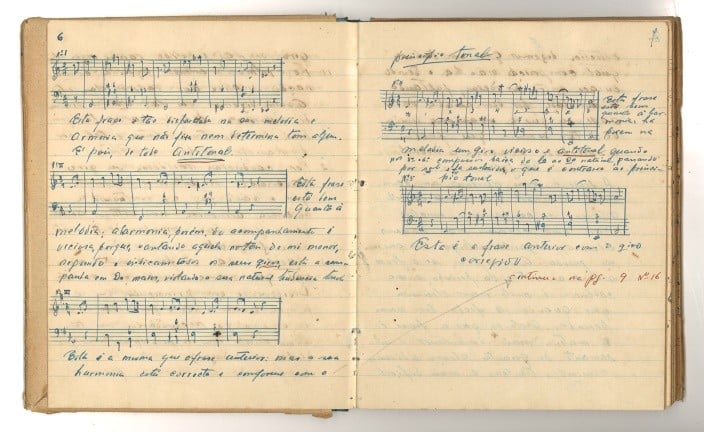 6
Esta frase é tão disfarçada na sua melodia e
armonia que não fixa nem determina tom algum.
É pois, de todo antitonal.
Esta frase
está bem
quanto á
melodia; a harmonia, porém, do acompanhamento é
viciosa, porque, estando aquela no tom de mi menor,
segundo o indicam todos os seus giros, está a acom
panha em Do maior, violando a sua natural tendencia tonal
Esta é a mesma que a frase anterior: mas a sua
harmonia está correcta e conforme com o
principio tonal
Esta frase
está bem
quanto á har
monia; ha
porem na
melodia um giro vicioso e antitonal quando
no compasso baixa do la ao natural, passando
por sol, o que é contrario ao princi-
pio tonal
Esta é a frase anterior com o giro
corregido
Continua na pg. 9 Nº 16